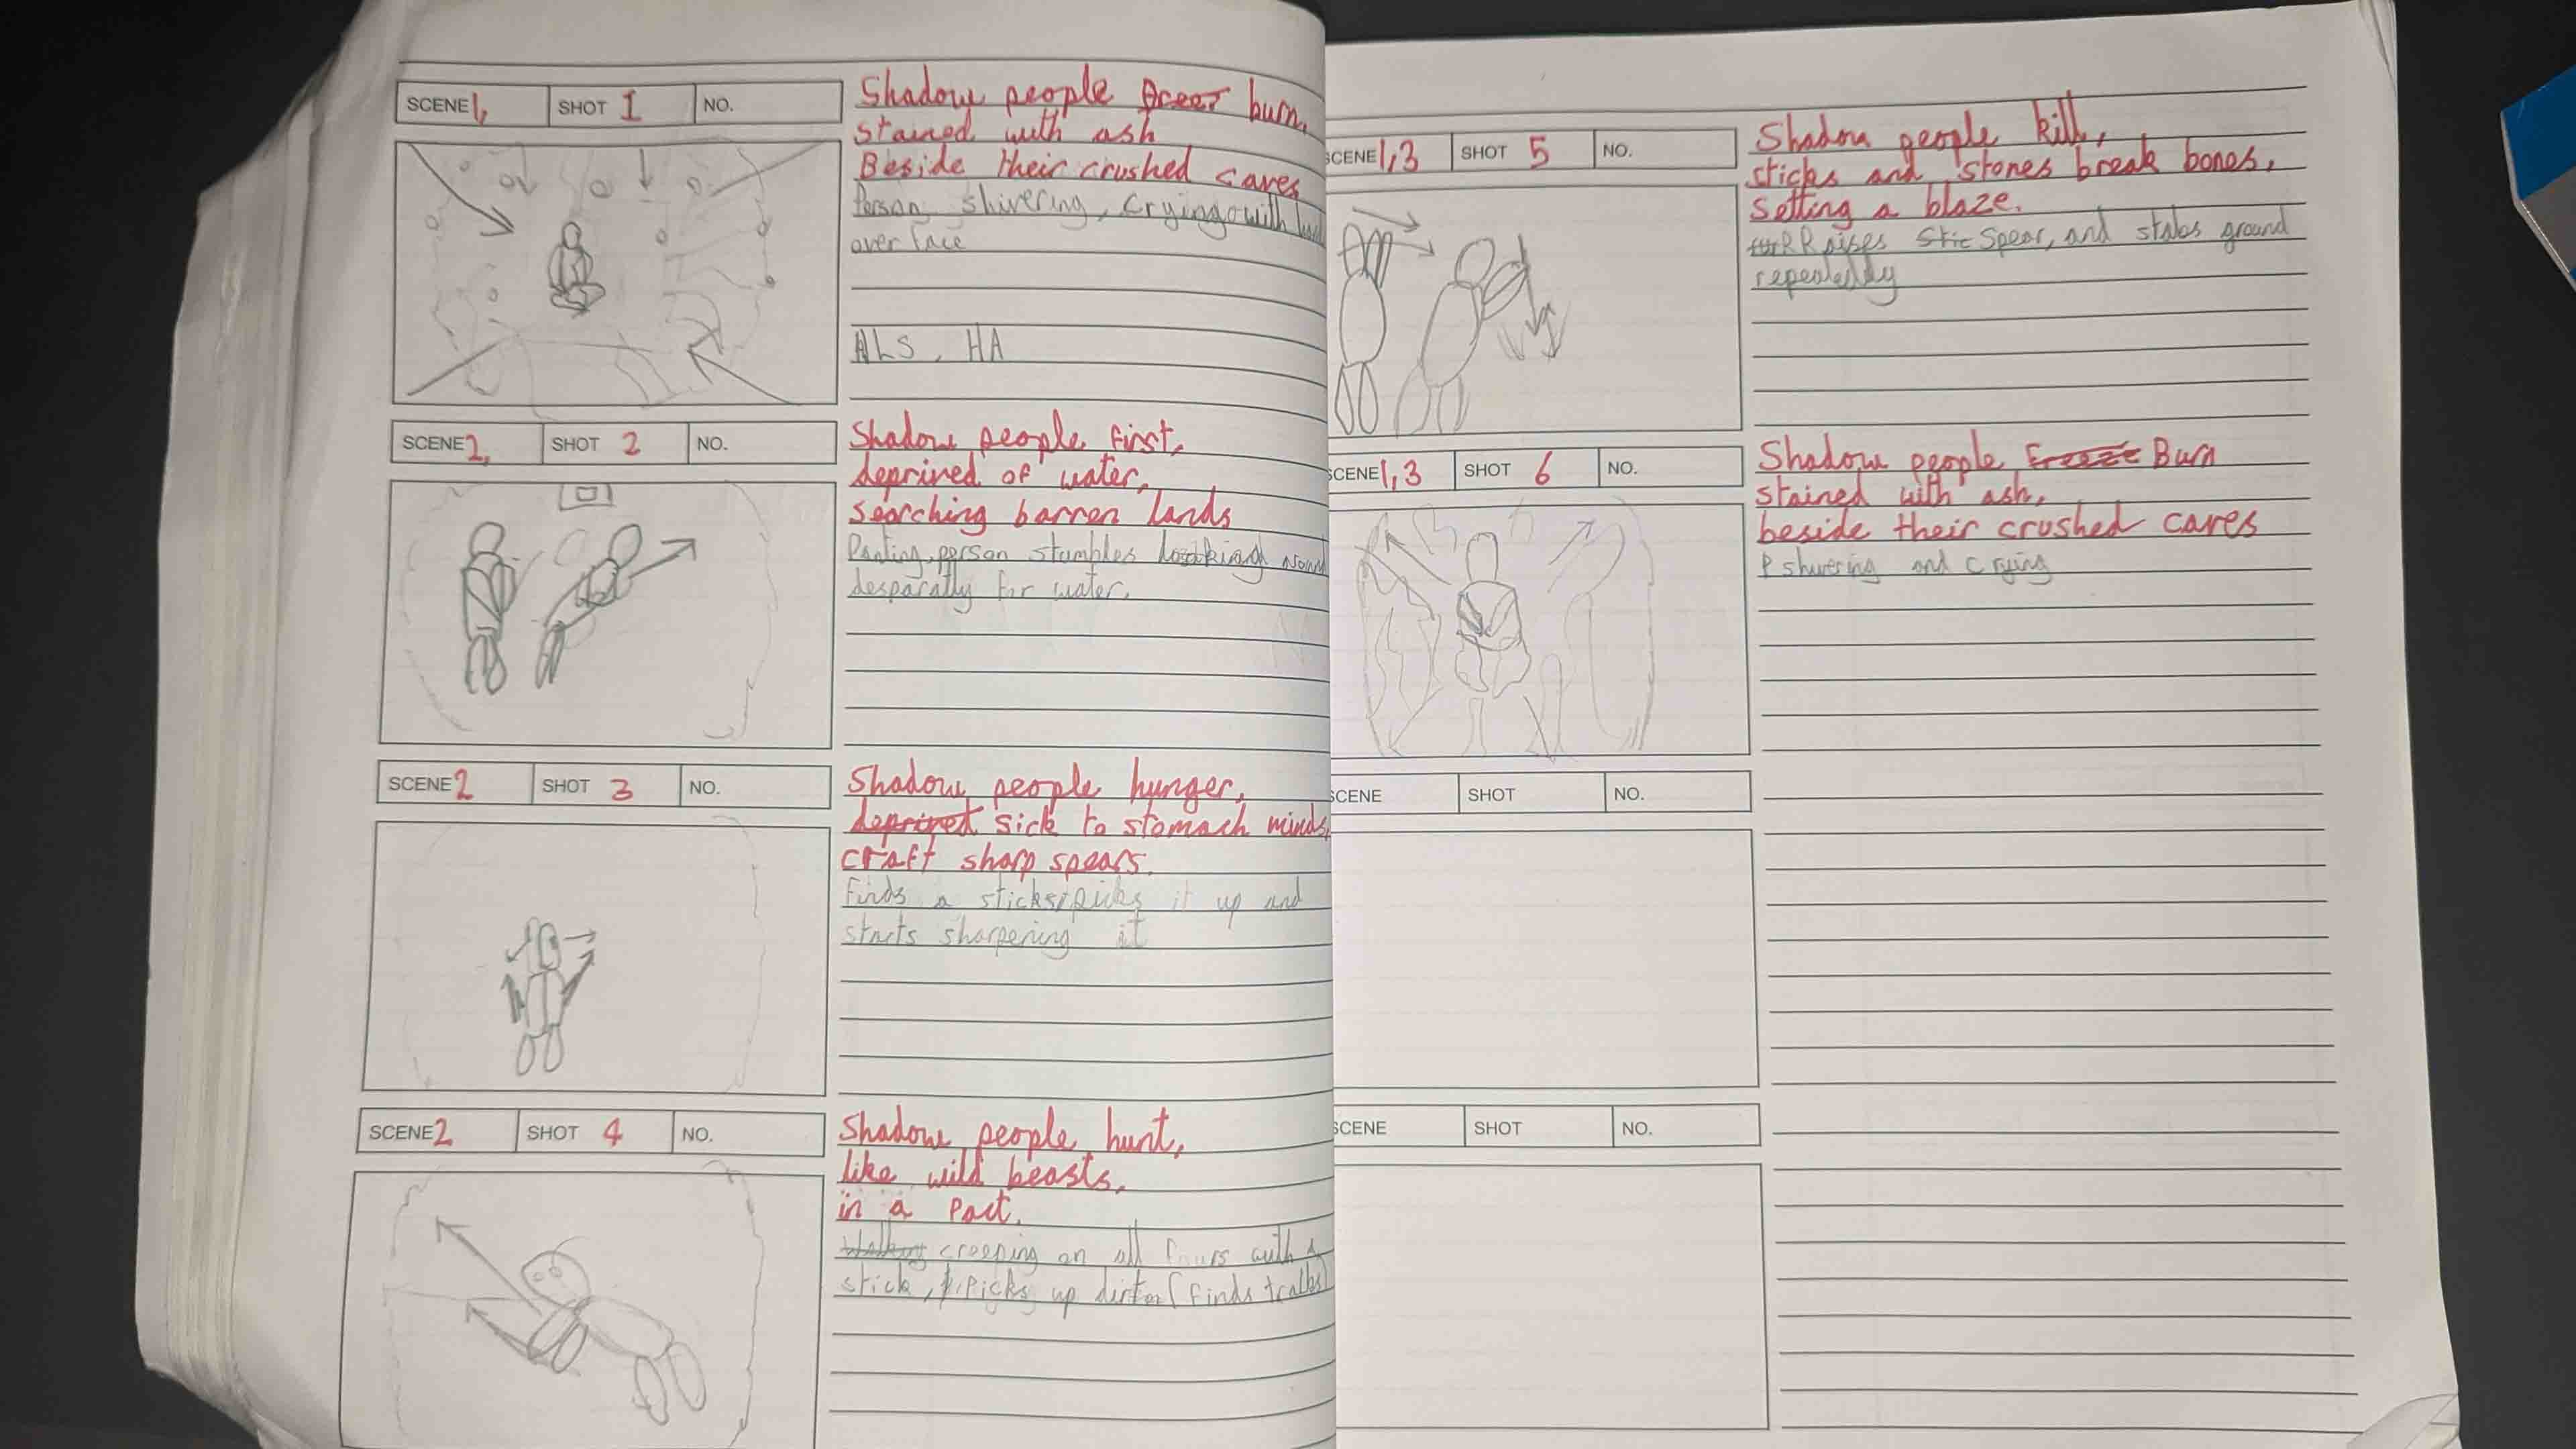 SCENE 1, SHOT 1 NO.
Shadow people burn,
stained with ash
Beside their crushed caves
Person shivering, crying with
over face
HA
SCENE 2, SHOT 2 NO.
Shadow people first,
deprived of water,
searching barren lands
Panting, person stumbles looking
desparatly for water.
SCENE 2 SHOT 3 NO.
Shadow people hunger,
deprived sick to stomach minds,
craft sharp spears.
finds a sticks picks it up and
starts sharpening it
SCENE 2 SHOT 4 NO.
Shadow people hunt,
like wild beasts,
in a pact.
Walking creeping on all fours with a
stick, picks up dirt (finds
SCENE 1,3 SHOT 5 NO.
Shadow people kill,
sticks and stones break bones,
setting a blaze.
Raises Stic Spear, and stabs ground
repeatedly
SCENE 1,3 SHOT 6 NO.
Shadow people Freeze Burn
stained with ash,
beside their crushed caves
P shivering and crying
SCENE SHOT NO.
SCENE SHOT NO.